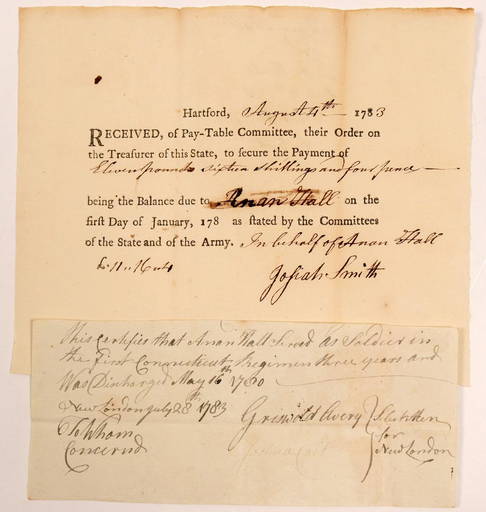 Hartford, August 4th 1783
RECEIVED, of Pay-Table Committee, their Order on
the Treasurer of this State, to secure the Payment of
Eleven pounds sixteen Shillings and four pence
being the Balance due to Anan Hall on the
first Day of January, 178 as stated by the Committees
of the State and of the Army. In behalf of Anan Hall
£11..16..4
Josiah Smith
This certifies that Anan Hall Served as Soldier in
the First Connecticut Regiment three years and
Was Discharged May 16th 1780
New London July 28th 1783
To Whom
Concernd
Griswold Avery
Selectmen
for
New London